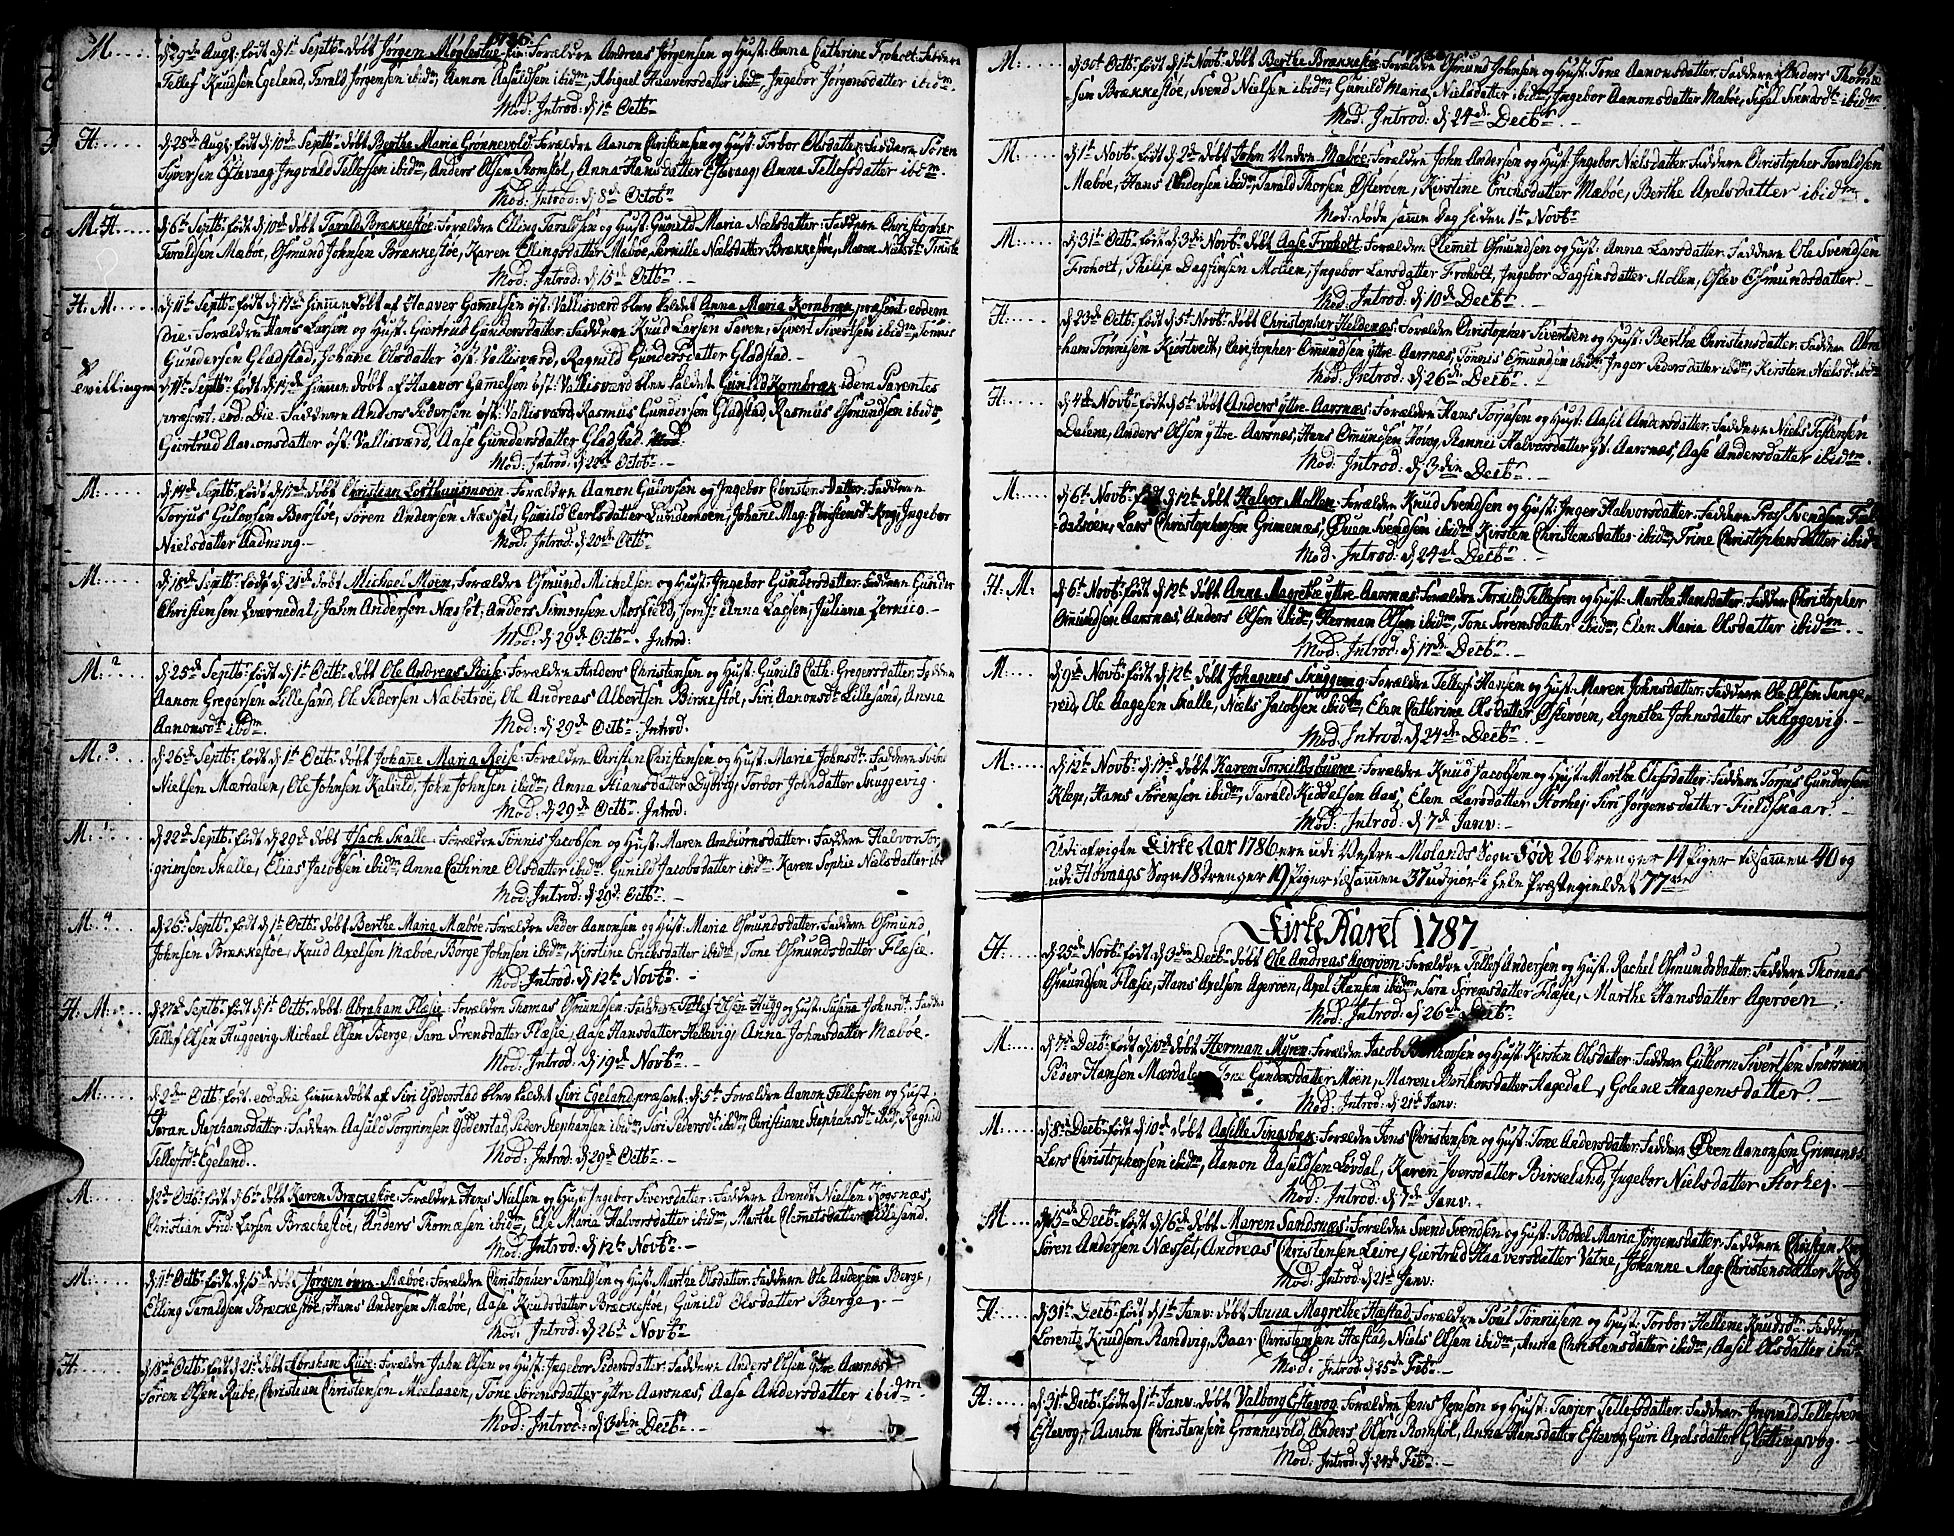 1786
M.... d 29de Aug: født d 1t Septbr døbt Jørgen Møglestue. Forældre Andreas Jørgensen og Hust: Anna Cathrine Froholt. Faddere
Tellef Knudsen Egeland, Tarald Jørgensen ibidm, Aanon Aasuldsen ibidm, Abigael Haaversdatter ibidm, Ingebor Jørgensdatter ibidm.
Mod. Introd: d 1t Octbr
H: .... d 28de Aug: født d 10de Septbr døbt Berthe Maria Grønnevold: Forældre Aanon Christensen og Hust: Torbor Olsdatter: Faddere Søren
Syversen Estevaag, Ingvald Tellefsen ibidm, Anders Olsen Romsøl, Anna Hansdatter Estevaag, Anna Tellefsdatter ibidm.
Mod: Introd: d 8de Octobr
M. H. .... d 6t Septbr født d 10de døbt Tarald Brækkestøe: Forældre Elling Taraldsen og Hust: Gunild Maria Nielsdatter: Faddere Christopher
Taraldsen Mabøe, Osmund Johnsen Brækkestøe, Karen Ellingsdatter Mabøe, Pernille Nielsdatter Brækkestøe, Maren Nielsdt:
Mod: Introd: d 15de Octbr
H. M .... d 11t Septbr født d 17de hiemmedøbt af Haaver Gamelsen øst: Vallisværd blev kaldet Anna Maria Kornbræk, præsent: eodem
Die: Forældre Hans Larsen og Hust: Giertrud Gundersdatter: Faddere Knud Larsen Saven, Sivert Sivertsen ibidm, Tønnis
Gundersen Gladstad, Johane Olsdatter øst: Vallisværd, Ragnild Gundersdatter Gladstad.
Tvillinger d 11t Septbr født d 17de hiemmedøbt af Haaver Gamelsen øst: Vallisværd blev kaldet Gunild Kornbræk idem Parentes
præsent. eod: Die. Faddere Anders Pedersen øst: Vallisværd, Rasmus Gundersen Gladstad, Rasmus Osmundsen ibidm,
Giertrud Aanonsdatter øst: Vallisværd, Aase Gundersdatter Gladstad.
Mod: Introd: d 22de Octobr.
M: .... d 14de Septbr født d 17de døbt Christian Lofthuusmoen: Forældre Aanon Gulovsen og Ingebor Christensdatter: Faddere
Torjus Gulovsen Berstøe, Søren Andersen Næsset, Gunild Carlsdatter Lundemoen, Johane Mag: Christensdt: Krog, Ingebor
Nielsdatter Aadnevig. Mod: Introd: d 20de Octbr
M: .... d 18de Septbr født d 21de døbt Michael Moen, Forældre Osmund Michelsen og Hust: Ingebor Gundersdatter: Faddere Gunder
Christensen Tværnedal, Jahn Andersen Næsset, Anders Simonsen Mosfield, Jomf: Anna Lassen, Juliana
Mod: d 29de Octbr. Introd:
M: 2 d 25de Septbr født d 1t Octbr døbt Ole Andreas Reise: Forældre Anders Christensen og Hust: Gunild Cath: Gregersdatter: Faddere
Aanon Gregersen Lillesand, Ole Pedersen Næbetrøe, Ole Andreas Albertsen Birkestøl, Siri Aanonsdt Lillesand, Anna
Aanonsdt: ibidm. Mod: d 29de Octbr Introd.
M: 3 d 26de Septbr født d 1t Octbr døbt Johane Maria Reise: Forældre Christen Christensen og Hust: Maria Johnsdt: Faddere
Nielsen Mærdalen, Ole Johnsen Kalvild, John Johnsen ibidm, Anna Hiansdatter Dybvig, Torbor Johnsdatter Skuggevig
Mod: d 29de Octbr Introd:
M: 1 d 22de Septbr født d 29de døbt Isach Skalle: Forældre Tønnis Jacobsen og Hust: Maren Ambiørnsdatter: Faddere Halvor Tor
grimsen Skalle, Elias Jacobsen ibidm, Anna Cathrine Olsdatter ibidm, Gunild Jacobsdatter ibidm, Karen Sophie Nielsdatter ib
Mod: Introd: d 29de Octbr.
M: 4 d 26de Septbr født d 1t Octbr døbt Berthe Maria Mæbøe: Forældre Peder Aanonsen og Hust: Maria Osmundsdatter: Faddere Osmund
Johnsen Brækkestøe, Knud Axelsen Mæbøe, Børge Johnsen ibidm, Kirstine Ericksdatter ibidm, Tone Osmundsdatter Flæsie.
Mod: Introd: d 12t Novbr.
H: M: 5 d 27de Septbr født d 1t Octbr døbt Abraham Flæsie: Forældre Thomas Osmundsen og Hust: Susana Johnsdt: Faddere
Tellef Olsen Huggevig, Michael Olsen Berge, Sara Sørensdatter Flæsie, Aase Hansdatter Hellevig, Anna Johnsdatter Mæbøe.
Mod: Introd: d 19de Novbr.
M: .... d 2den Octbr født eod: Die hiemmedøbt af Siri Ydderstad blev kaldet Siri Egeland præsent: d 5t Forældre Aanon Tellefsen og Hust:
Taran Stephansdatter: Faddere Aasuld Torgrimsen Ydderstad, Peder Stephansen ibidm, Siri Pedersdt: ibidm, Christiane Stephansdt: ibidm, Ragnild
Tellefsdt: Egeland. Mod: Introd: d 29de Octbr.
M: .... d 2den Octbr født d 6t døbt Karen Brækestøe: Forældre Hans Nielsen og Hust: Ingebor Siversdatter: Faddere Arendt Nielsen Kogsnæs,
Christian Frid: Larsen Bræchestøe, Anders Thomæsen ibidm, Else Maria Halvorsdatter ibidm, Marthe Clemetsdatter Lillesand.
Mod: Introd: d 12t Novbr.
M: .... d 11t Octbr født d 15de døbt Jørgen øvre Mæbøe: Forældre Christopher Taraldsen og Hust: Marthe Olsdatter: Faddere Ole Andersen Berge,
Elling Taraldsen Bræckestøe, Hans Andersen Mæbøe, Aase Knudsdatter Bræckestøe, Gunild Olsdatter Berge.
Mod: Introd: d 26de Novbr
H. .... d 18de Octbr født d 21de døbt Abraham Ribe: Forældre Jahn Olsen og Hust: Ingebor Pedersdatter: Faddere Anders Olsen yttre Aarsnæs,
Søren Olsen Ribe, Christian Christensen Meelagen, Tone Sørensdatter yttre Aarsnæs, Aase Andersdatter ibidm
Mod: Introd: d 3die Decbr.
M: .... d 30t Octbr født d 1t Novbr døbt Berthe Brækkestøe: Forældre Osmund Johnsen og Hust: Tone Aanonsdatter: Faddere Anders Thomæ
sen Brækkestøe, Svend Nielsen ibidm, Gunild Maria Nielsdatter ibidm, Ingebor Aanonsdatter Mabøe, Sissel Svendsdt: ibidm
Mod: Introd: d 24de Decbr.
M: .... d 1t Novbr født d 2de døbt John Nedre Mabøe: Forældre John Andersen og Hust: Ingebor Nielsdatter: Faddere Christopher Taraldsen
Mæbøe, Hans Andersen ibidm, Tarald Thorsen Østerøen, Kirstine Erichsdatter Mæbøe, Berthe Axelsdatter ibidm.
Mod: døde samme Dag siden 1t Novbr
M: .... d 31t Octbr født d 3die Novbr døbt Aase Froholt: Forældre Clemet Osmundsen og Hust: Anna Larsdatter: Faddere Ole Svendsen
Froholt, Philip Dagfinsen Mollen, Ingebor Larsdatter Froholt, Ingebor Dagfinsdatter Mollen, Eslev Osmundsdatter.
Mod: Introd: d 10de Decbr.
H: .... d 23de Octbr født d 5t Novbr døbt Christopher Heldenæs: Forældre Christopher Sivertsen og Hust: Berthe Christensdatter: Faddere Abra
ham Tønnisen Kiøstvedt, Christopher Omundsen yttre Aarsnæs, Tønnis Omundsen ibidm, Inger Pedersdatter ibidm, Kirsten Nielsdt: ibidm
Mod: Introd: d 26de Decbr.
H: .... d 4de Novbr født d 5t døbt Anders yttre Aarsnæs: Forældre Hans Torjusen og Hust: Aasil Andersdatter: Faddere Niels Tostensen
Dalene, Anders Olsen yttre Aarsnæs, Hans Omundsen Høvog, Rannei Halvorsdatter yt: Aarsnæs, Aase Andersdatter ibidm.
Mod: Introd: d 3die Decbr.
M: .... d 6t Novbr født d 12te døbt Halvor Mollen: Forældre Knud Svendsen og Hust: Inger Halvorsdatter: Faddere Svendsen
dalsøen, Lars Christophersen Grimenæs, Øven Svendsen ibidm, Kirsten Christensdatter ibidm, Trine Christophersdatter ibidm
Mod: Introd: d 24de Decbr
H: M: d 6t Novbr født d 12t døbt Anne Magrethe yttre Aarsnæs: Forældre Torkild Tellefsen og Hust: Marthe Hansdatter: Faddere Christopher
Omundsen Aarsnæs, Anders Olsen ibidm, Herman Olsen ibidm, Tone Sørensdatter ibidm, Elen Maria Olsdatter ibidm.
Mod: Introd: d 17de Decbr.
M: .... d 9de Novbr født d 12t døbt Johannes Skuggevig: Forældre Tellef Hansen og Hust: Maren Johnsdatter: Faddere Ole Olsen Tange
reid, Ole Aagesen Skalle, Niels Jacobsen ibidm, Elen Cathrine Olsdatter Østerøen, Agnethe Johnsdatter Skuggevig.
Mod: Introd: d 24de Decbr.
M: .... d 12t Novbr født d 17de døbt Karen Torkildsbuene: Forældre Knud Jacobsen og Hust: Marthe Elefsdatter: Faddere Torjus Gundersen
Klep, Hans Sørensen ibidm, Tarald Kiddelsen Aas, Elen Larsdatter Storhej, Siri Jørgensdatter Fieldskaar.
Mod: Introd: d 7de Janv:
Udi afvigte Kirke Aar 1786 ere udi Vestre-Molands Sogn Føde 26 Drenger 14 Piger tilsammen 40 og
udi Høvaags Sogn 18 Drenger 19 Piger tilsammen 37 udgiør i hele Præstegieldet 77
Kirke Aaret 1787
H. .... d 25de Novbr født d 3die Decbr døbt Ole Andreas Ageroen: Forældre Tellef Andersen og Hust: Rachel Osmundsdatter: Faddere Thomas
Osmundsen Flæsie, Hans Axelsen Ageroen, Axel Hansen ibidm, Sara Sørensdatter Flæsie, Marthe Hansdatter Ageroen
Mod: Introd: d 26de Decbr
M .... d 7de Decbr født d 10de døbt Herman Myren: Forældre Jacob og Hust: Kirsten Olsdatter: Faddere Gutborm Sivertsen
Peder Hansen Mærdalen, Tone Gundersdatter Moen, Maren Berthorsdatter Aagedal, Golene Haagensdatter
Mod: Introd: d 21de Janv:
M. .... d 8de Decbr født d 10de døbt Aasille Tingsbæk: Forældre Jens Christensen og Hust: Tone Andersdatter: Faddere Øven Aanonsen Grimenæs
Lars Christophersen ibidm, Aanon Aasuldsen Løvdal, Karen Iversdatter Birkeland, Ingebor Nielsdatter Storhej.
Mod: Introd: d 7de Janv:
M. .... d 15de Decbr født d 16de døbt Maren Sandsnæs: Forældre Svend Svendsen og Hust: Bodel Maria Jørgensdatter: Faddere Christen
Søren Andersen Næsset, Andreas Christensen Leire, Giertrud Haaversdatter Vatne, Johanne Mag: Christensdatter Krog
Mod: Introd: d 21de Janv:
H: .... d 31t Decbr født d 1t Janv: døbt Anna Magrethe Hæstad: Forældre Poul Tønnisen og Hust: Torbor Hellene Knudsdt: Faddere
Lorentz Knudsen Aandvig, Baar Christensen Hæstad, Niels Olsen ibidm, Anna Christensdatter ibidm, Aasil Olsdatter ibidm
Mod: Introd: d 25de Febr.
H: .... d 31t Decbr født d 1t Janv: døbt Valborg Estevog: Forældre Jens Jensen og Hust: Tarjer Tellefsdatter: Faddere Ingvald Tellefsen
Estevog, Aanon Christensen Grønnevold, Anders Olsen Romsøl, Anna Hansdatter Estevog, Guri Axelsdatter Glottingsvog.
Mod: Introd: d 24de Febr.